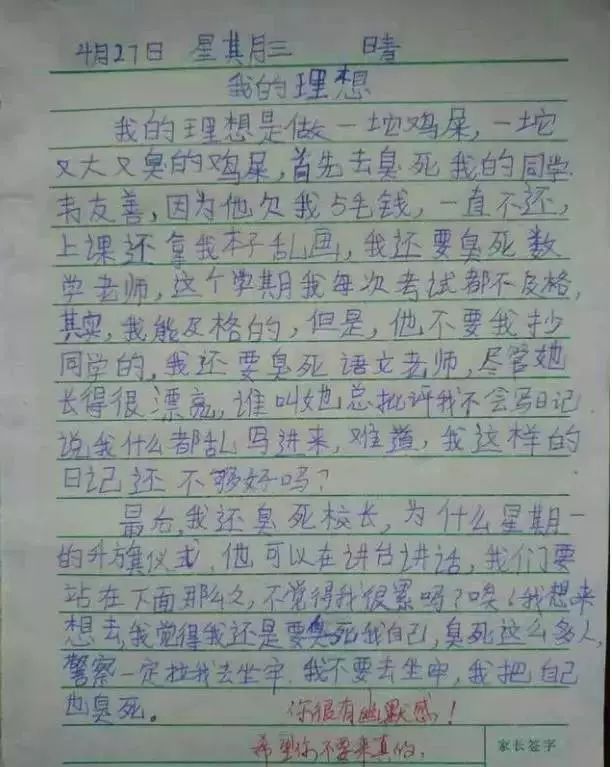 4月27日 星其月三 晴
我的理想
我的理想是做一坨鸡屎,一坨
又大又臭的鸡屎,首先去臭死我的同学
韦友善,因为他欠我5毛钱,一直不还,
上课还拿我本子乱画,我还要臭死数
学老师,这个学期我每次考试都不及格,
其实,我能及格的,但是,他不要我抄
同学的,我还要臭死语文老师,尽管她
长得很漂亮,谁叫她总批评我不会写日记
说我什么都乱写进来,难道,我这样的
日记还不够好吗?
最后,我还臭死校长,为什么星期一
的升旗仪式,他可以在讲台讲话,我们要
站在下面那么久,不觉得我很累吗?唉!我想来
想去,我觉得我还是要臭死我自己,臭死这么多人,
警察一定拉我去坐牢.我不要去坐牢,我把自己
也臭死。
你很有幽默感!
希望你不要来真的.
家长签字